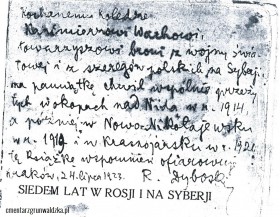 Kochanemu Koledze
Kazimierzowi Wachowi
towarzyszowi broni z wojny świa-
towej i z szeregów polskich na Syberji,
na pamiątkę chwil wspólnie przeży-
tych w okopach nad Nidą w r. 1914
a później w Nowo-Nikołajewsku
w r. 1919 i w Krasnojarsku w r. 1920
tę książkę wspomnień ofiarowuję
Kraków, 24 lipca 1933. R. Dyboski
SIEDEM LAT W ROSJI I NA SYBERJI
cmentarzgrunwaldzka.pl